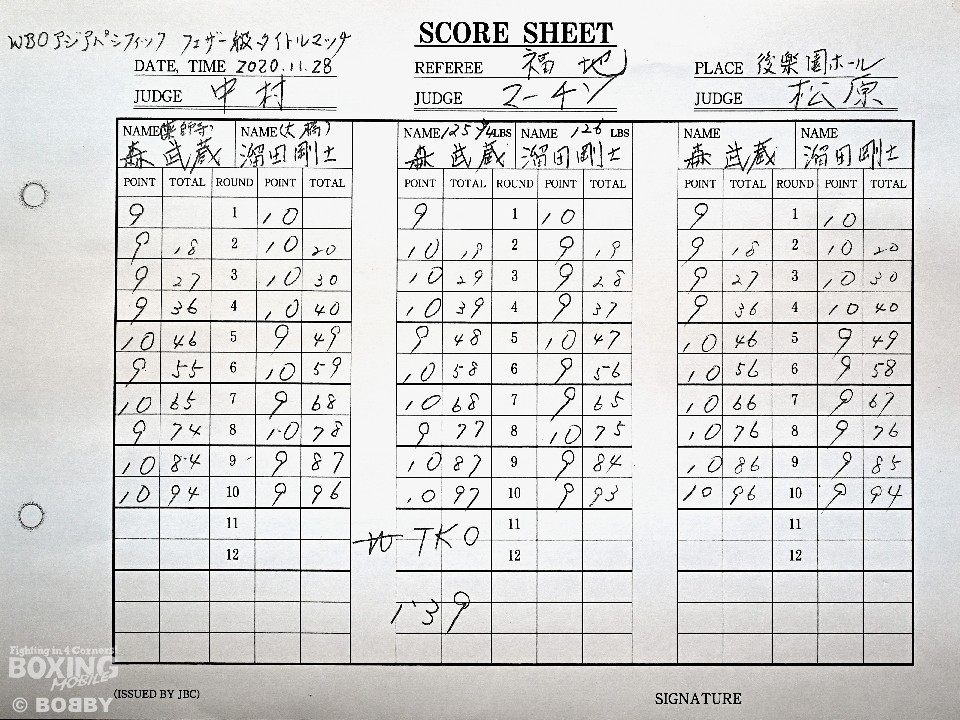 SCORE SHEET
WBOアジアパシフィック フェザー級タイトルマッチ
DATE, TIME 2020.11.28 REFEREE 福地 PLACE 後楽園ホール
JUDGE 中村 JUDGE マーチン JUDGE 松原
NAME(薬師寺) NAME(大橋) NAME 125 3/4 LBS NAME 126 LBS NAME NAME
森 武蔵 溜田剛士 森 武蔵 溜田剛士 森 武蔵 溜田剛士
POINT TOTAL ROUND POINT TOTAL POINT TOTAL ROUND POINT TOTAL POINT TOTAL ROUND POINT TOTAL
9 1 10 9 1 10 9 1 10
9 18 2 10 20 10 19 2 9 19 9 18 2 10 20
9 27 3 10 30 10 29 3 9 28 9 27 3 10 30
9 36 4 10 40 10 39 4 9 37 9 36 4 10 40
10 46 5 9 49 9 48 5 10 47 10 46 5 9 49
9 55 6 10 59 10 58 6 9 56 10 56 6 9 58
10 65 7 9 68 10 68 7 9 65 10 66 7 9 67
9 74 8 10 78 9 77 8 10 75 10 76 8 9 76
10 84 9 9 87 10 87 9 9 84 10 86 9 9 85
10 94 10 9 96 10 97 10 9 93 10 96 10 9 94
11 11 11
TKO
12 12 12
1'39
Fighting in 4 Corners
BOXING
MOBILE
© BOBBY
(ISSUED BY JBC) SIGNATURE